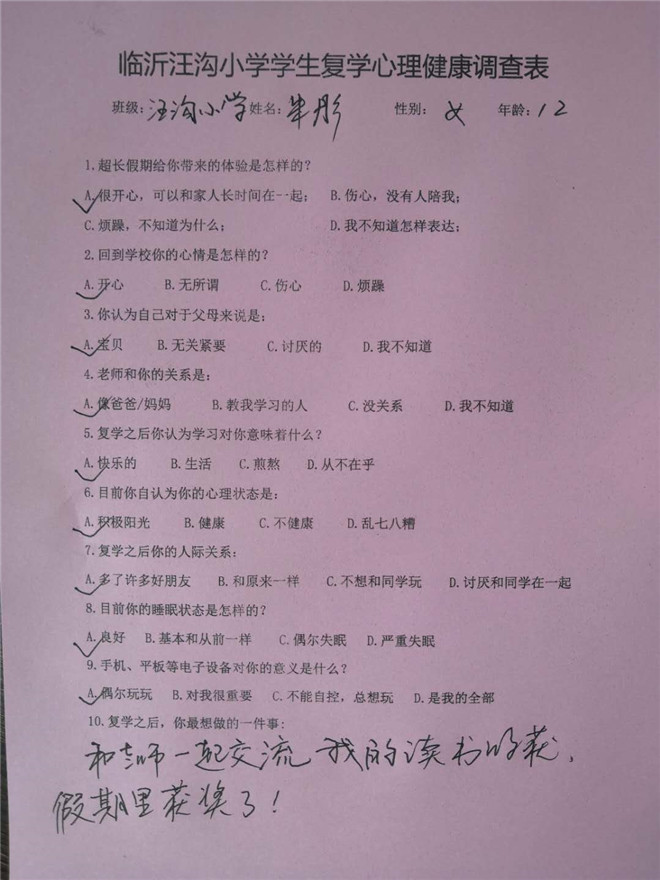 临沂汪沟小学学生复学心理健康调查表
班级：汪沟小学 姓名： 彤 性别：女 年龄：12
1.超长假期给你带来的体验是怎样的？
A.很开心，可以和家人长时间在一起； B.伤心，没有人陪我；
C.烦躁，不知道为什么； D.我不知道怎样表达；
2.回到学校你的心情是怎样的？
A.开心 B.无所谓 C.伤心 D.烦躁
3.你认为自己对于父母来说是；
A.宝贝 B.无关紧要 C.讨厌的 D.我不知道
4.老师和你的关系是：
A.像爸爸/妈妈 B.教我学习的人 C.没关系 D.我不知道
5.复学之后你认为学习对你意味着什么？
A.快乐的 B.生活 C.煎熬 D.从不在乎
6.目前你自认为你的心理状态是：
A.积极阳光 B.健康 C.不健康 D.乱七八糟
7.复学之后你的人际关系：
A.多了许多好朋友 B.和原来一样 C.不想和同学玩 D.讨厌和同学在一起
8.目前你的睡眠状态是怎样的？
A.良好 B.基本和从前一样 C.偶尔失眠 D.严重失眠
9.手机、平板等电子设备对你的意义是什么？
A.偶尔玩玩 B.对我很重要 C.不能自控，总想玩 D.是我的全部
10.复学之后，你最想做的一件事：
和老师一起交流我的读书收获，
假期里获奖了！